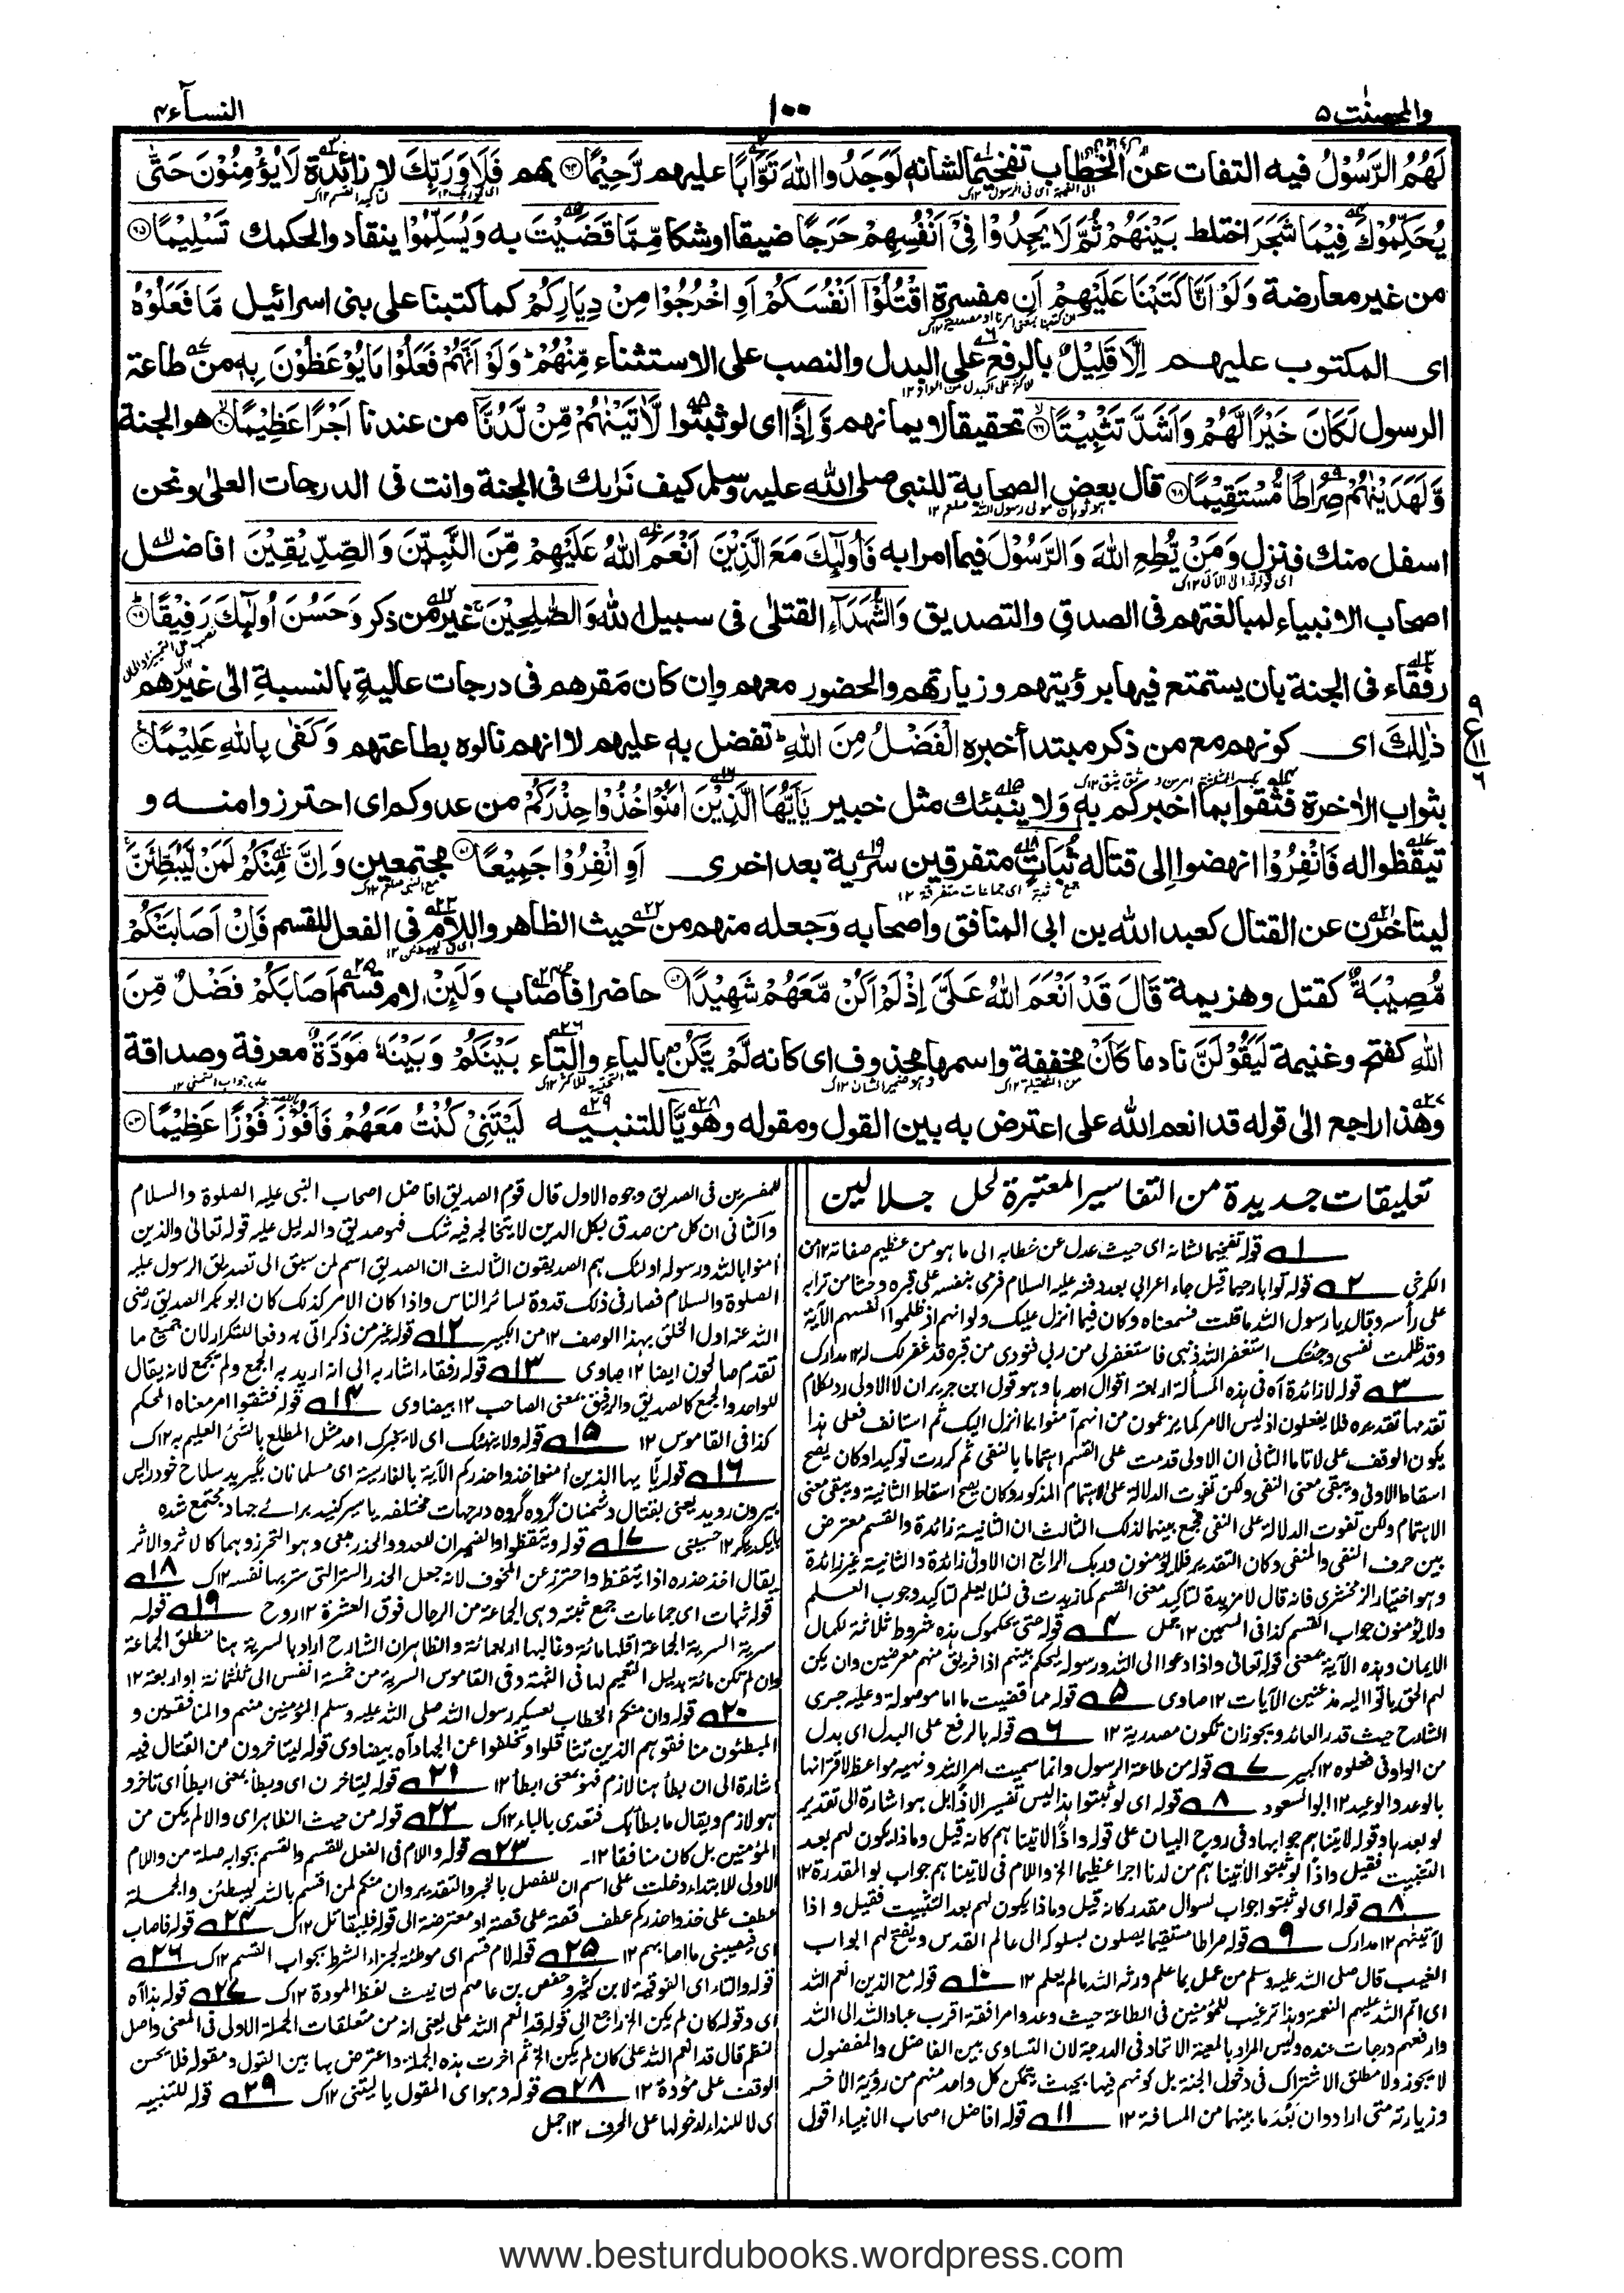 والمحصنٰت ٥
١٠٠
النسآء ٤
لَهُمُ الرَّسُوْلُ فيه التفات عن الخطاب تفخيما لشانه لَوَجَدُوا اللّٰهَ تَوَّابًا عليهم رَّحِيْمًا ۝٦٤ بهم فَلَا وَرَبِّكَ لا زائدة لَا يُؤْمِنُوْنَ حَتّٰى
يُحَكِّمُوْكَ فِيْمَا شَجَرَ اختلط بَيْنَهُمْ ثُمَّ لَا يَجِدُوْا فِيْٓ اَنْفُسِهِمْ حَرَجًا ضيقا او شكا مِّمَّا قَضَيْتَ به وَيُسَلِّمُوْا ينقادوا لحكمك تَسْلِيْمًا ۝٦٥
من غير معارضة وَلَوْ اَنَّا كَتَبْنَا عَلَيْهِمْ اَنِ مفسرة اقْتُلُوْٓا اَنْفُسَكُمْ اَوِ اخْرُجُوْا مِنْ دِيَارِكُمْ كما كتبنا على بنى اسرائيل مَّا فَعَلُوْهُ
اى المكتوب عليهم اِلَّا قَلِيْلٌ بالرفع على البدل والنصب على الاستثناء مِّنْهُمْ ؕ وَلَوْ اَنَّهُمْ فَعَلُوْا مَا يُوْعَظُوْنَ بِهٖ من طاعة
الرسول لَكَانَ خَيْرًا لَّهُمْ وَاَشَدَّ تَثْبِيْتًا ۝٦٦ تحقيقا لايمانهم وَّاِذًا اى لو ثبتوا لَّاٰتَيْنٰهُمْ مِّنْ لَّدُنَّآ من عندنا اَجْرًا عَظِيْمًا ۝٦٧ هو الجنة
وَّلَهَدَيْنٰهُمْ صِرَاطًا مُّسْتَقِيْمًا ۝٦٨ قال بعض الصحابة للنبى صلى الله عليه وسلم كيف نراك فى الجنة وانت فى الدرجات العلىٰ ونحن
اسفل منك فنزل وَمَنْ يُّطِعِ اللّٰهَ وَالرَّسُوْلَ فيما امرا به فَاُولٰٓئِكَ مَعَ الَّذِيْنَ اَنْعَمَ اللّٰهُ عَلَيْهِمْ مِّنَ النَّبِيّٖنَ وَالصِّدِّيْقِيْنَ افاضل
اصحاب الانبياء لمبالغتهم فى الصدق والتصديق وَالشُّهَدَآءِ القتلىٰ فى سبيل الله وَالصّٰلِحِيْنَ ۚ غير من ذكر وَحَسُنَ اُولٰٓئِكَ رَفِيْقًا ۝٦٩
رفقاء فى الجنة بان يستمتع فيها برؤيتهم وزيارتهم والحضور معهم وان كان مقرهم فى درجات عالية بالنسبة الىٰ غيرهم
ذٰلِكَ اى كونهم مع من ذكر مبتدأ خبره الْفَضْلُ مِنَ اللّٰهِ ؕ تفضل به عليهم لا انهم نالوه بطاعتهم وَكَفٰى بِاللّٰهِ عَلِيْمًا ۝٧٠
بثواب الاٰخرة فثقوا بما اخبركم به ولا ينبئك مثل خبير يٰٓاَيُّهَا الَّذِيْنَ اٰمَنُوْا خُذُوْا حِذْرَكُمْ من عدوكم اى احترزوا منه و
تيقظوا له فَانْفِرُوْا انهضوا الى قتاله ثُبَاتٍ متفرقين سرية بعد اخرى اَوِ انْفِرُوْا جَمِيْعًا ۝٧١ مجتمعين وَاِنَّ مِنْكُمْ لَمَنْ لَّيُبَطِّئَنَّ ۚ
ليتاخرن عن القتال كعبد الله بن ابى المنافق واصحابه وجعله منهم من حيث الظاهر واللام فى الفعل للقسم فَاِنْ اَصَابَتْكُمْ
مُّصِيْبَةٌ كقتل وهزيمة قَالَ قَدْ اَنْعَمَ اللّٰهُ عَلَيَّ اِذْ لَمْ اَكُنْ مَّعَهُمْ شَهِيْدًا ۝٧٢ حاضرا فاصاب وَلَئِنْ لام قسم اَصَابَكُمْ فَضْلٌ مِّنَ
اللّٰهِ كفتح وغنيمة لَيَقُوْلَنَّ نادما كَاَنْ مخففة واسمها محذوف اى كانه لَّمْ يَكُنْ بالياء والتاء بَيْنَكُمْ وَبَيْنَهٗ مَوَدَّةٌ معرفة وصداقة
وهذا راجع الىٰ قوله قد انعم الله على اعترض به بين القول ومقوله وهو يٰا للتنبيه لَيْتَنِيْ كُنْتُ مَعَهُمْ فَاَفُوْزَ فَوْزًا عَظِيْمًا ۝٧٣
تعليقات جديدة من التفاسير المعتبرة لحل جلالين
١ قوله تفخيما لشانه اى حيث عدل عن خطابه الى ما هو من عظيم صفاته ١٢ من
الكرخى ٢ قوله توابا رحيما قيل جاء اعرابى بعد دفنه عليه السلام فرمى بنفسه على قبره وحثا من ترابه
على رأسه وقال يا رسول الله ما قلت فسمعناه وكان فيما انزل عليك ولو انهم اذ ظلموا انفسهم الآية
وقد ظلمت نفسى وجئتك استغفر الله ذنبى فاستغفرلى من ربى فنودى من قبره قد غفر لك ١٢ مدارك
٣ قوله لا زائدة آه فى هذه المسألة اربعة اقوال احدها وهو قول ابن جرير ان لا الاولى رد لكلام
تقدمها تقديره فلا يفعلون او ليس الامر كما يزعمون من انهم آمنوا بما انزل اليك ثم استانف فعلى هذا
يكون الوقف على لا تاما الثانى ان الاولى قدمت على القسم اهتماما بالنفى ثم كررت توكيدا وكان يصح
اسقاط الاولى ويبقى معنى النفى ولكن تفوت الدلالة على الاهتمام المذكور وكان يصح اسقاط الثانية ويبقى معنى
الاهتمام ولكن تفوت الدلالة على النفى فجمع بينهما لذلك الثالث ان الثانية زائدة والقسم معترض
بين حرف النفى والمنفى وكان التقدير فلا يؤمنون وربك الرابع ان الاولى زائدة والثانية غير زائدة
وهو اختيار الزمخشرى فانه قال لا مزيدة لتاكيد معنى القسم كما زيدت فى لئلا يعلم لتاكيد وجوب العلم
ولا يؤمنون جواب القسم كذا فى السمين ١٢ جمل ٤ قوله حتى يحكموك هذه شروط ثلاثة لكمال
الايمان وهذه الآية بمعنى قوله تعالى واذا دعوا الى الله ورسوله ليحكم بينهم اذا فريق منهم معرضون وان يكن
لهم الحق ياتوا اليه مذعنين الآيات ١٢ صاوى ٥ قوله مما قضيت ما اما موصولة وعليه جرى
الشارح حيث قدر العائد ويجوز ان تكون مصدرية ١٢ ٦ قوله بالرفع على البدل اى بدل
من الواو فى فعلوه ١٢ كبير ٧ قوله من طاعة الرسول وانما سميت امر الله ونهيه مواعظ لاقترانها
بالوعد والوعيد ١٢ ابو السعود ٨ قوله اى لو ثبتوا هذا ليس تفسيرا لاذا بل هو اشارة الى تقدير
لو بعدها وقوله لآتيناهم جوابها وفى روح البيان على قوله واذًا لآتيناهم كانه قيل وماذا يكون لهم بعد
التثبيت فقيل واذًا لو ثبتوا لآتيناهم من لدنا اجرا عظيما الخ واللام فى لآتيناهم جواب لو المقدرة ١٢
٨ قوله اى لو ثبتوا جواب لسوال مقدر كانه قيل وماذا يكون لهم بعد التثبيت فقيل واذا
لآتينهم ١٢ مدارك ٩ قوله صراطا مستقيما يصلون بسلوكه الى عالم القدس ويفتح لهم ابواب
الغيب قال صلى الله عليه وسلم من عمل بما علم ورثه الله ما لم يعلم ١٢ ١٠ قوله مع الذين انعم الله
اى اتم الله عليهم النعمة وهذا ترغيب للمؤمنين فى الطاعة حيث وعدوا مرافقة اقرب عباد الله الى الله
وارفعهم درجات عنده وليس المراد بالمعية الاتحاد فى الدرجة لان التساوى بين الفاضل والمفضول
لا يجوز ولا مطلق الاشتراك فى دخول الجنة بل كونهم فيها بحيث يتمكن كل واحد منهم من رؤية الآخر
وزيارته متى اراد وان بعد ما بينهما من المسافة ١٢ ١١ قوله افاضل اصحاب الانبياء اقول
للمفسرين فى الصديق وجوه الاول قال قوم الصديق افاضل اصحاب النبى عليه الصلوة والسلام
والثانى ان كل من صدق بكل الدين لا يتخالجه فيه شك فهو صديق والدليل عليه قوله تعالى والذين
آمنوا بالله ورسوله اولئك هم الصديقون الثالث ان الصديق اسم لمن سبق الى تصديق الرسول عليه
الصلوة والسلام فصار فى ذلك قدوة لسائر الناس واذا كان الامر كذلك كان ابو بكر الصديق رضى
الله عنه اول الخلق بهذا الوصف ١٢ من الكبير ١٢ قوله غير من ذكر اتى به دفعا للتكرار لان جميع ما
تقدم صالحون ايضا ١٢ صاوى ١٣ قوله رفقاء اشار به الى انه اريد به الجمع ولم يجمع لانه يقال
للواحد والجمع كالصديق والرفيق بمعنى الصاحب ١٢ بيضاوى ١٤ قوله فثقوا امر معناه المحكم
كذا فى القاموس ١٢ ١٥ قوله ولا ينبئك اى لا يخبرك احد مثل المطلع بالشئ العليم به ١٢ ك
١٦ قوله يا ايها الذين آمنوا خذوا حذركم الآية بالفارسية اى مسلمانان بگيريد سلاح خود را پس
بيرون رويد يعنى بقتال دشمنان گروه گروه در جهات مختلفه يا سير كنيد برائے جهاد مجتمع شده
بايكديگر ١٢ حسينى ١٧ قوله وتيقظوا له والضمير ان للعدو والحذر بمعنى وهو التحرز وهما كالاثر والاثر
يقال اخذ حذره اذا تيقظ واحترز عن المخوف لانه جعل الحذر الستر التى ستر بها نفسه ١٢ ك ١٨
قوله ثبات اى جماعات جمع ثبة وهى الجماعة من الرجال فوق العشرة ١٢ روح ١٩ قوله
سرية السرية الجماعة اقلها مائة وغالبها اربعمائة والظاهر ان الشارح اراد بالسرية هنا مطلق الجماعة
وان لم تكن مائة بدليل التعميم لها فى الثبة وفى القاموس السرية من خمسة انفس الى ثلثمائة او اربعة ١٢
٢٠ قوله وان منكم الخطاب لعسكر رسول الله صلى الله عليه وسلم المؤمنين منهم والمنافقين و
المبطئون منافقوهم الذين تثاقلوا وتخلفوا عن الجهاد آه بيضاوى قوله ليتاخرون من القتال فيه
اشارة الى ان بطأ هنا لازم فهو بمعنى ابطأ ١٢ ٢١ قوله ليتاخرن اى وبطأ بمعنى ابطأ اى تاخر و
هو لازم ويقال ما بطأ بك فتعدى بالباء ١٢ ك ٢٢ قوله من حيث الظاهر اى والا لم يكن من
المؤمنين بل كان منافقا ١٢ ٢٣ قوله واللام فى الفعل للقسم والقسم بجوابه صلة من واللام
الاولى للابتداء دخلت على اسم ان للفصل بالخبر والتقدير وان منكم لمن اقسم بالله ليبطئن والجملة
عطف على خذوا حذركم عطف قصة على قصة او معترضة الى قوله فليقاتل ١٢ ك ٢٤ قوله فاصاب
اى فيصيبنى ما اصابهم ١٢ ٢٥ قوله لام قسم اى موطئة لجزاء الشرط بجواب القسم ١٢ ك ٢٦
قوله والتاء اى الفوقية لابن كثير وحفص بن عاصم لتانيث لفظ المودة ١٢ ك ٢٧ قوله هذا آه
اى وقوله كان لم يكن الخ راجع الى قوله قد انعم الله على يعنى انه من متعلقات الجملة الاولى فى المعنى واصل
النظم قال قد انعم الله على كان لم يكن الخ ثم اخرت هذه الجملة واعترض بها بين القول ومقوله فلا يحسن
الوقف على مودة ١٢ ٢٨ قوله وهو اى المقول يا ليتنى ١٢ ك ٢٩ قوله للتنبيه
اى لا للنداء لدخولها على الحرف ١٢ جمل
www.besturdubooks.wordpress.com